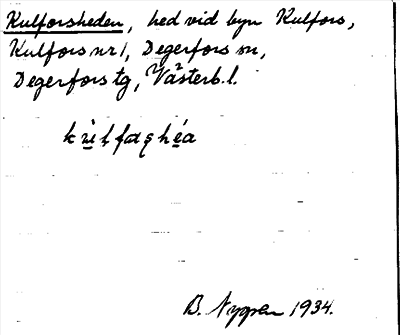 Kulforsheden, hed vid byn Kulfors,
Kulfors nr 1, Degerfors sn,
Degerfors tg, Västerb. l.
B. Nygren 1934.